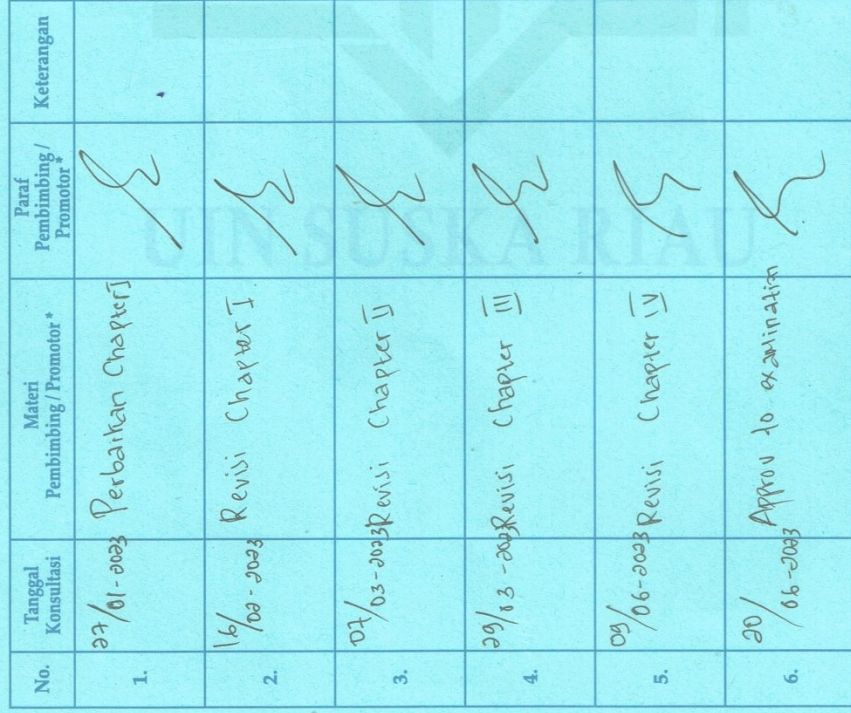 No.
Tanggal
Konsultasi
Materi
Pembimbing / Promotor *
Paraf
Pembimbing /
Promotor *
Keterangan
1.
27/01-2023
Perbaikan Chapter I
2.
16/02-2023
Revisi Chapter I
3.
07/03-2023
Revisi Chapter II
4.
29/03-2023
Revisi Chapter III
5.
09/06-2023
Revisi Chapter IV
6.
20/
06-2023
Approv to examination
UIN SUSKA RIAU